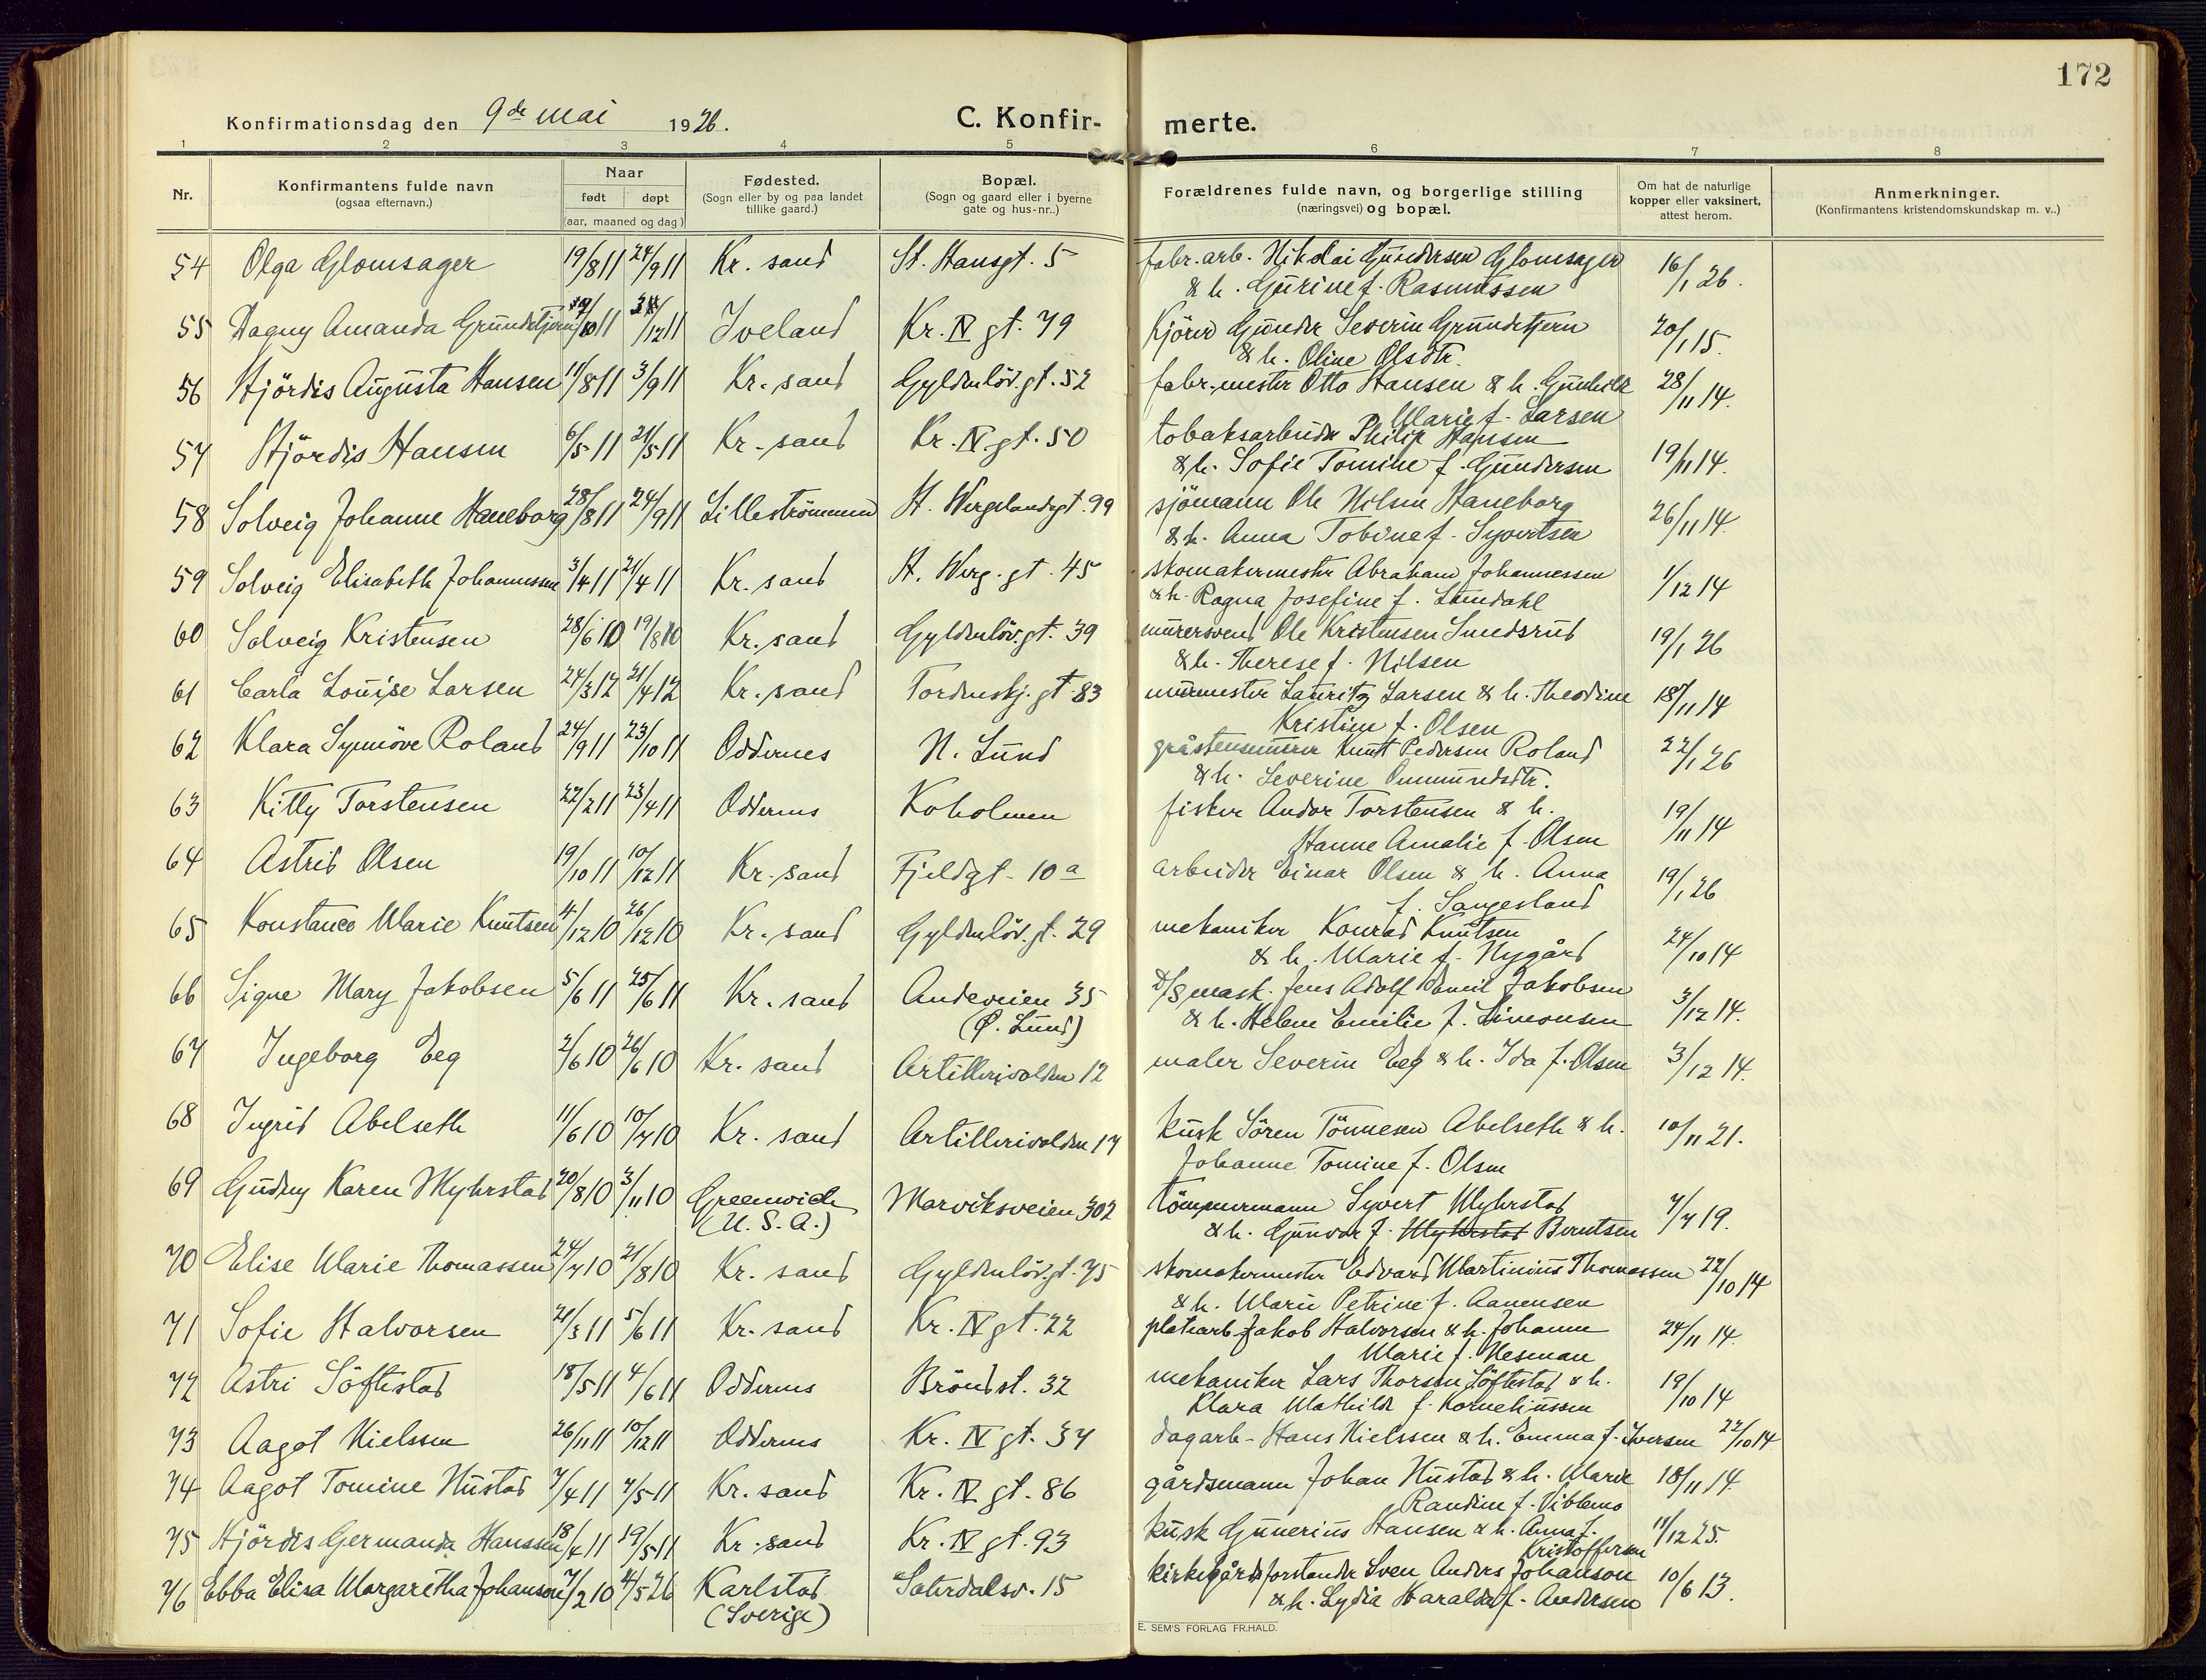 172
Konfirmationsdag den 9de mai 1926.
C. Konfir- merte.
1 2 3 4 5 6 7 8
Nr.
Konfirmantens fulde navn
(ogsaa efternavn.)
Naar
født døpt
(aar, maaned og dag)
Fødested.
(Sogn eller by og paa landet
tillike gaard.)
Bopæl.
(Sogn og gaard eller i byerne
gate og hus-nr..)
Forældrenes fulde navn, og borgerlige stilling
(næringsvei) og bopæl.
Om hat de naturlige
kopper eller vaksinert,
attest herom.
Anmerkninger.
(Konfirmantens kristendomskundskap m. v..)
54 Olga Glomsager 19/8 11 24/9 11 Kr. sand St. Hansgt. 5 fabr. arb. Nikolai Gundersen Glomsager 16/1 26.
& h. Gurine f. Rasmussen
55 Dagny Amanda Grundetjern /10 11 /12 11 Iveland Kr. IV gt. 79 Kjörer Gunder Severin Grundetjern 20/1 15.
& h. Oline Olsdtr.
56 Hjördis Augusta Hansen 11/8 11 3/9 11 Kr. sand Gyldenlöv. gt. 52 fabr. mester Otto Hansen & h. Gunhild 28/11 14.
Marie f. Larsen
57 Hjördis Hansen 6/5 11 21/5 11 Kr. sand Kr. IV gt. 50 tobaksarbeider Philip Hansen 19/11 14.
& h. Sofie Tomine f. Gundersen
58 Solveig Johanne Haneborg 28/8 11 24/9 11 Lilleströmmen H. Wergelandsgt. 99 sjömann Ole Nilsen Haneborg 26/11 14.
& h. Anna Tobine f. Syvertsen
59 Solveig Elisabeth Johannessen 3/4 11 21/4 11 Kr. sand H. Werg. gt. 45 skomakermester Abraham Johannessen 1/12 14
& h. Ragna Josefine f. Lundahl
60 Solveig Kristensen 28/6 10 19/8 10 Kr. sand Gyldenlöv. gt. 39 murersvend Ole Kristensen Smedsrud 19/1 26
& h. Therese f. Nilsen
61 Carla Louise Larsen 24/3 12 21/4 12 Kr. sand Tordenskj. gt. 83 murmester Lauritz Larsen & h. Theodine 18/11 14
Kristine f. Olsen
62 Klara Synnöve Roland 24/9 11 23/10 11 Oddernes N. Lund gråstensmurer Knut Pedersen Roland 22/1 26
& h. Severine Ommundsdtr.
63 Kitty Torstensen 22/2 11 23/4 11 Oddernes Koholmen fisker Andor Torstensen & h. 19/11 14
Hanne Amalie f. Olsen
64 Astrid Olsen 19/10 11 10/12 11 Kr. sand Fjeldgt. 10 a arbeider Einar Olsen & h. Anna 19/1 26
f. Sangesland
65 Konstance Marie Knutsen 4/12 10 26/12 10 Kr. sand Gyldenlöv. gt. 29 mekaniker Konrad Knutsen 24/10 14
& h. Marie f. Nygård
66 Signe Mary Jakobsen 5/6 11 25/6 11 Kr. sand Andeveien 35 D/S mask. Jens Adolf Emil Jakobsen 3/12 14.
(Ø. Lund) & h. Helene Emilie f. Simonsen
67 Ingeborg Eeg 2/6 10 26/6 10 Kr. sand Artillerivolden 12 maler Severin Eeg & h. Ida f. Olsen 3/12 14.
68 Ingrid Abelseth 11/6 10 10/7 10 Kr. sand Artillerivolden 17 kusk Sören Tönnesen Abelseth & h. 10/11 21.
Johanne Tomine f. Olsen
69 Gudny Karen Myhrstad 20/8 10 3/11 10 Greenwich Marviksveien 302 tömmermann Syvert Myhrstad 7/7 19.
(U. S. A.) & h. Gunvor f. Myhrstad Berntsen
70 Elise Marie Thomassen 24/7 10 21/8 10 Kr. sand Gyldenlöv. gt. 75 skomakermester Edvard Martinius Thomassen 22/10 14
& h. Marie Petrine f. Aanensen
71 Sofie Halvorsen 21/3 11 5/6 11 Kr. sand Kr. IV gt. 22 platearb. Jakob Halvorsen & h. Johanne 24/11 14.
Marie f. Nesman
72 Astri Söftestad 18/5 11 4/6 11 Oddernes Bröndst. 32 mekaniker Lars Thorsen Söftestad & h. 19/10 14
Klara Mathilde f. Korneliussen
73 Aagot Nielssen 26/11 11 10/12 11 Oddernes Kr. IV gt. 37 dagarb. Hans Nielssen & h. Emma f. Iversen 22/10 14
74 Aagot Tomine Hustad 7/4 11 7/5 11 Kr. sand Kr. IV gt. 86 gårdsmann Johan Hustad & h. Marie 18/11 14.
Randine f. Viblemo
75 Hjördis Germanda Hanssen 18/4 11 19/5 11 Kr. sand Kr. IV gt. 93 kusk Gunerius Hansen & h. Anna f. 11/12 25.
Kristoffersen
76 Ebba Elisa Margaretha Johanson 7/2 10 4/5 26 Karlstad Saterdalsv. 15 kirkegårdsforstander Sven Anders Johanson 10/6 13.
(Sverige) & h. Lydia Haralda f. Andersen
E. SEM'S FORLAG FR.HALD.